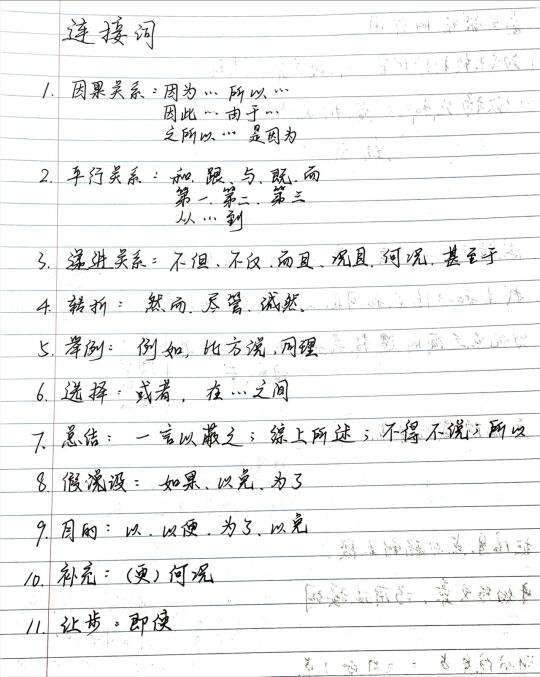 连接词
1. 因果关系：因为… 所以…
因此… 由于…
之所以… 是因为
2. 平行关系：和、跟、与、既、而
第一、第二、第三
从…到
3. 递进关系：不但、不仅、而且、况且、何况、甚至于
4. 转折：然而、尽管、诚然、
5. 举例：例如，比方说，同理
6. 选择：或者，在…之间
7. 总结：一言以蔽之；综上所述；不得不说；所以
8. 假设：如果、以免、为了
9. 目的：以、以便、为了、以免
10. 补充：（更）何况
11. 让步：即使